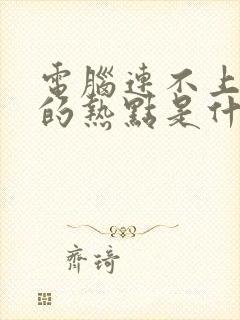 電腦連不上
的熱點是什
齊琦